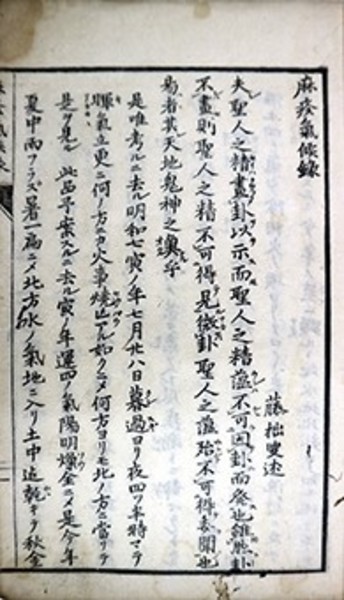 麻疹氣候録
藤拙叟述
夫聖人之精畫卦以示而聖人之精蘊不可因卦而發也雖然卦
不畫則聖人之精不可得見微卦聖人之蘊殆不可得悉聞也
易者其天地鬼神之奥乎
是唯考ルニ去ル明和七寅ノ年七月廿八日暮過ヨリ夜四ツ半時マテ
暉氣立更ニ何ノ方ニカ火事燒亡アル如クニメ何方ヨリモ北ノ方ニ當リテ
是ヲ見ル 此品予案スルニ去ル寅ノ年運四ノ氣陽明燥金ニメ是今年
夏中雨フラズ暑一扁ニメ北方水ノ氣地ニ入リ土中迄乾キテ秋金